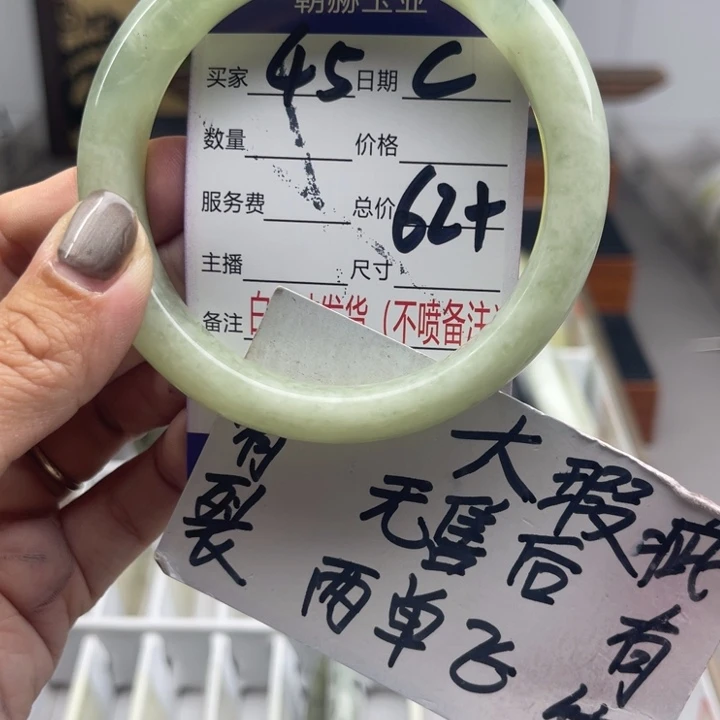 朝赫玉业
买家 45 日期 C
数量 价格
服务费 总价 62+
主播 尺寸
备注 白 发货（不喷备注）
有裂
大瑕疵
无售后 有
两单飞